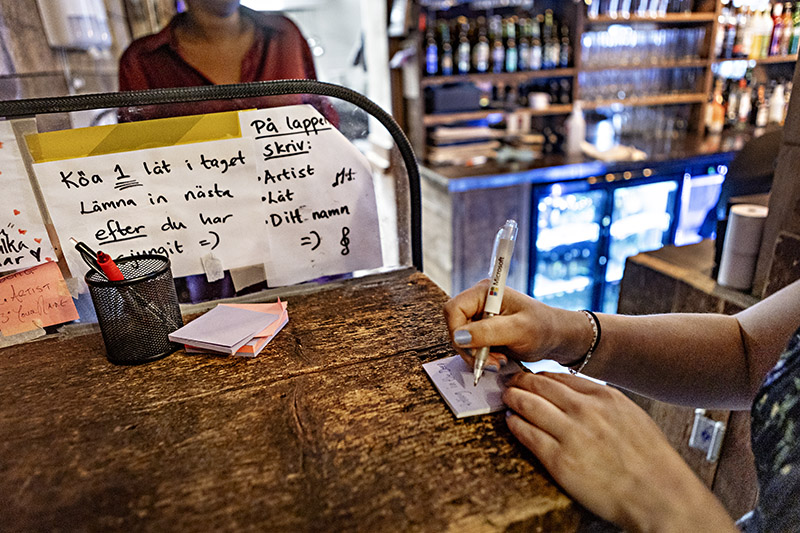 Köa 1 låt i taget
Lämna in nästa
efter du har
sjungit =)
På lappen
skriv:
• Artist
• Låt
• Ditt namn
=)
ARTIST
Microsoft